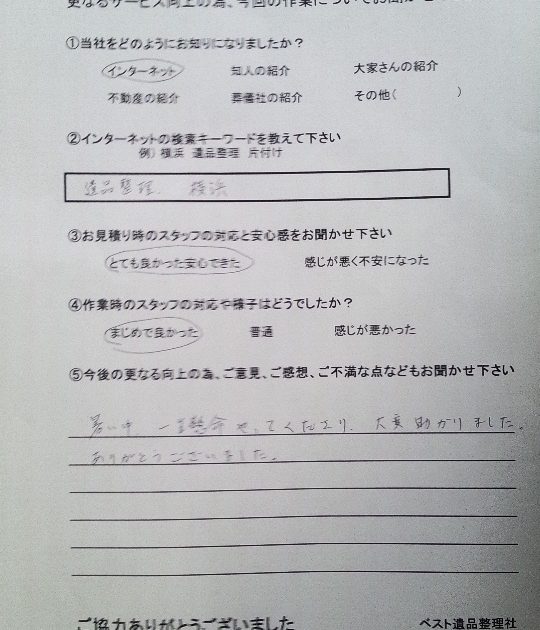 更なるサービス向上の為、今回の作業についてお聞かせ
①当社をどのようにお知りになりましたか？
インターネット 知人の紹介 大家さんの紹介
不動産の紹介 葬儀社の紹介 その他( )
②インターネットの検索キーワードを教えて下さい
例）横浜 遺品整理 片付け
遺品整理. 横浜
③お見積り時のスタッフの対応と安心感をお聞かせ下さい
とても良かった安心できた 感じが悪く不安になった
④作業時のスタッフの対応や様子はどうでしたか？
まじめで良かった 普通 感じが悪かった
⑤今後の更なる向上の為、ご意見、ご感想、ご不満な点などもお聞かせ下さい
暑い中 一生懸命 やってくださり、大変助かりました。
ありがとうございました。
ご協力ありがとうございました ベスト遺品整理社